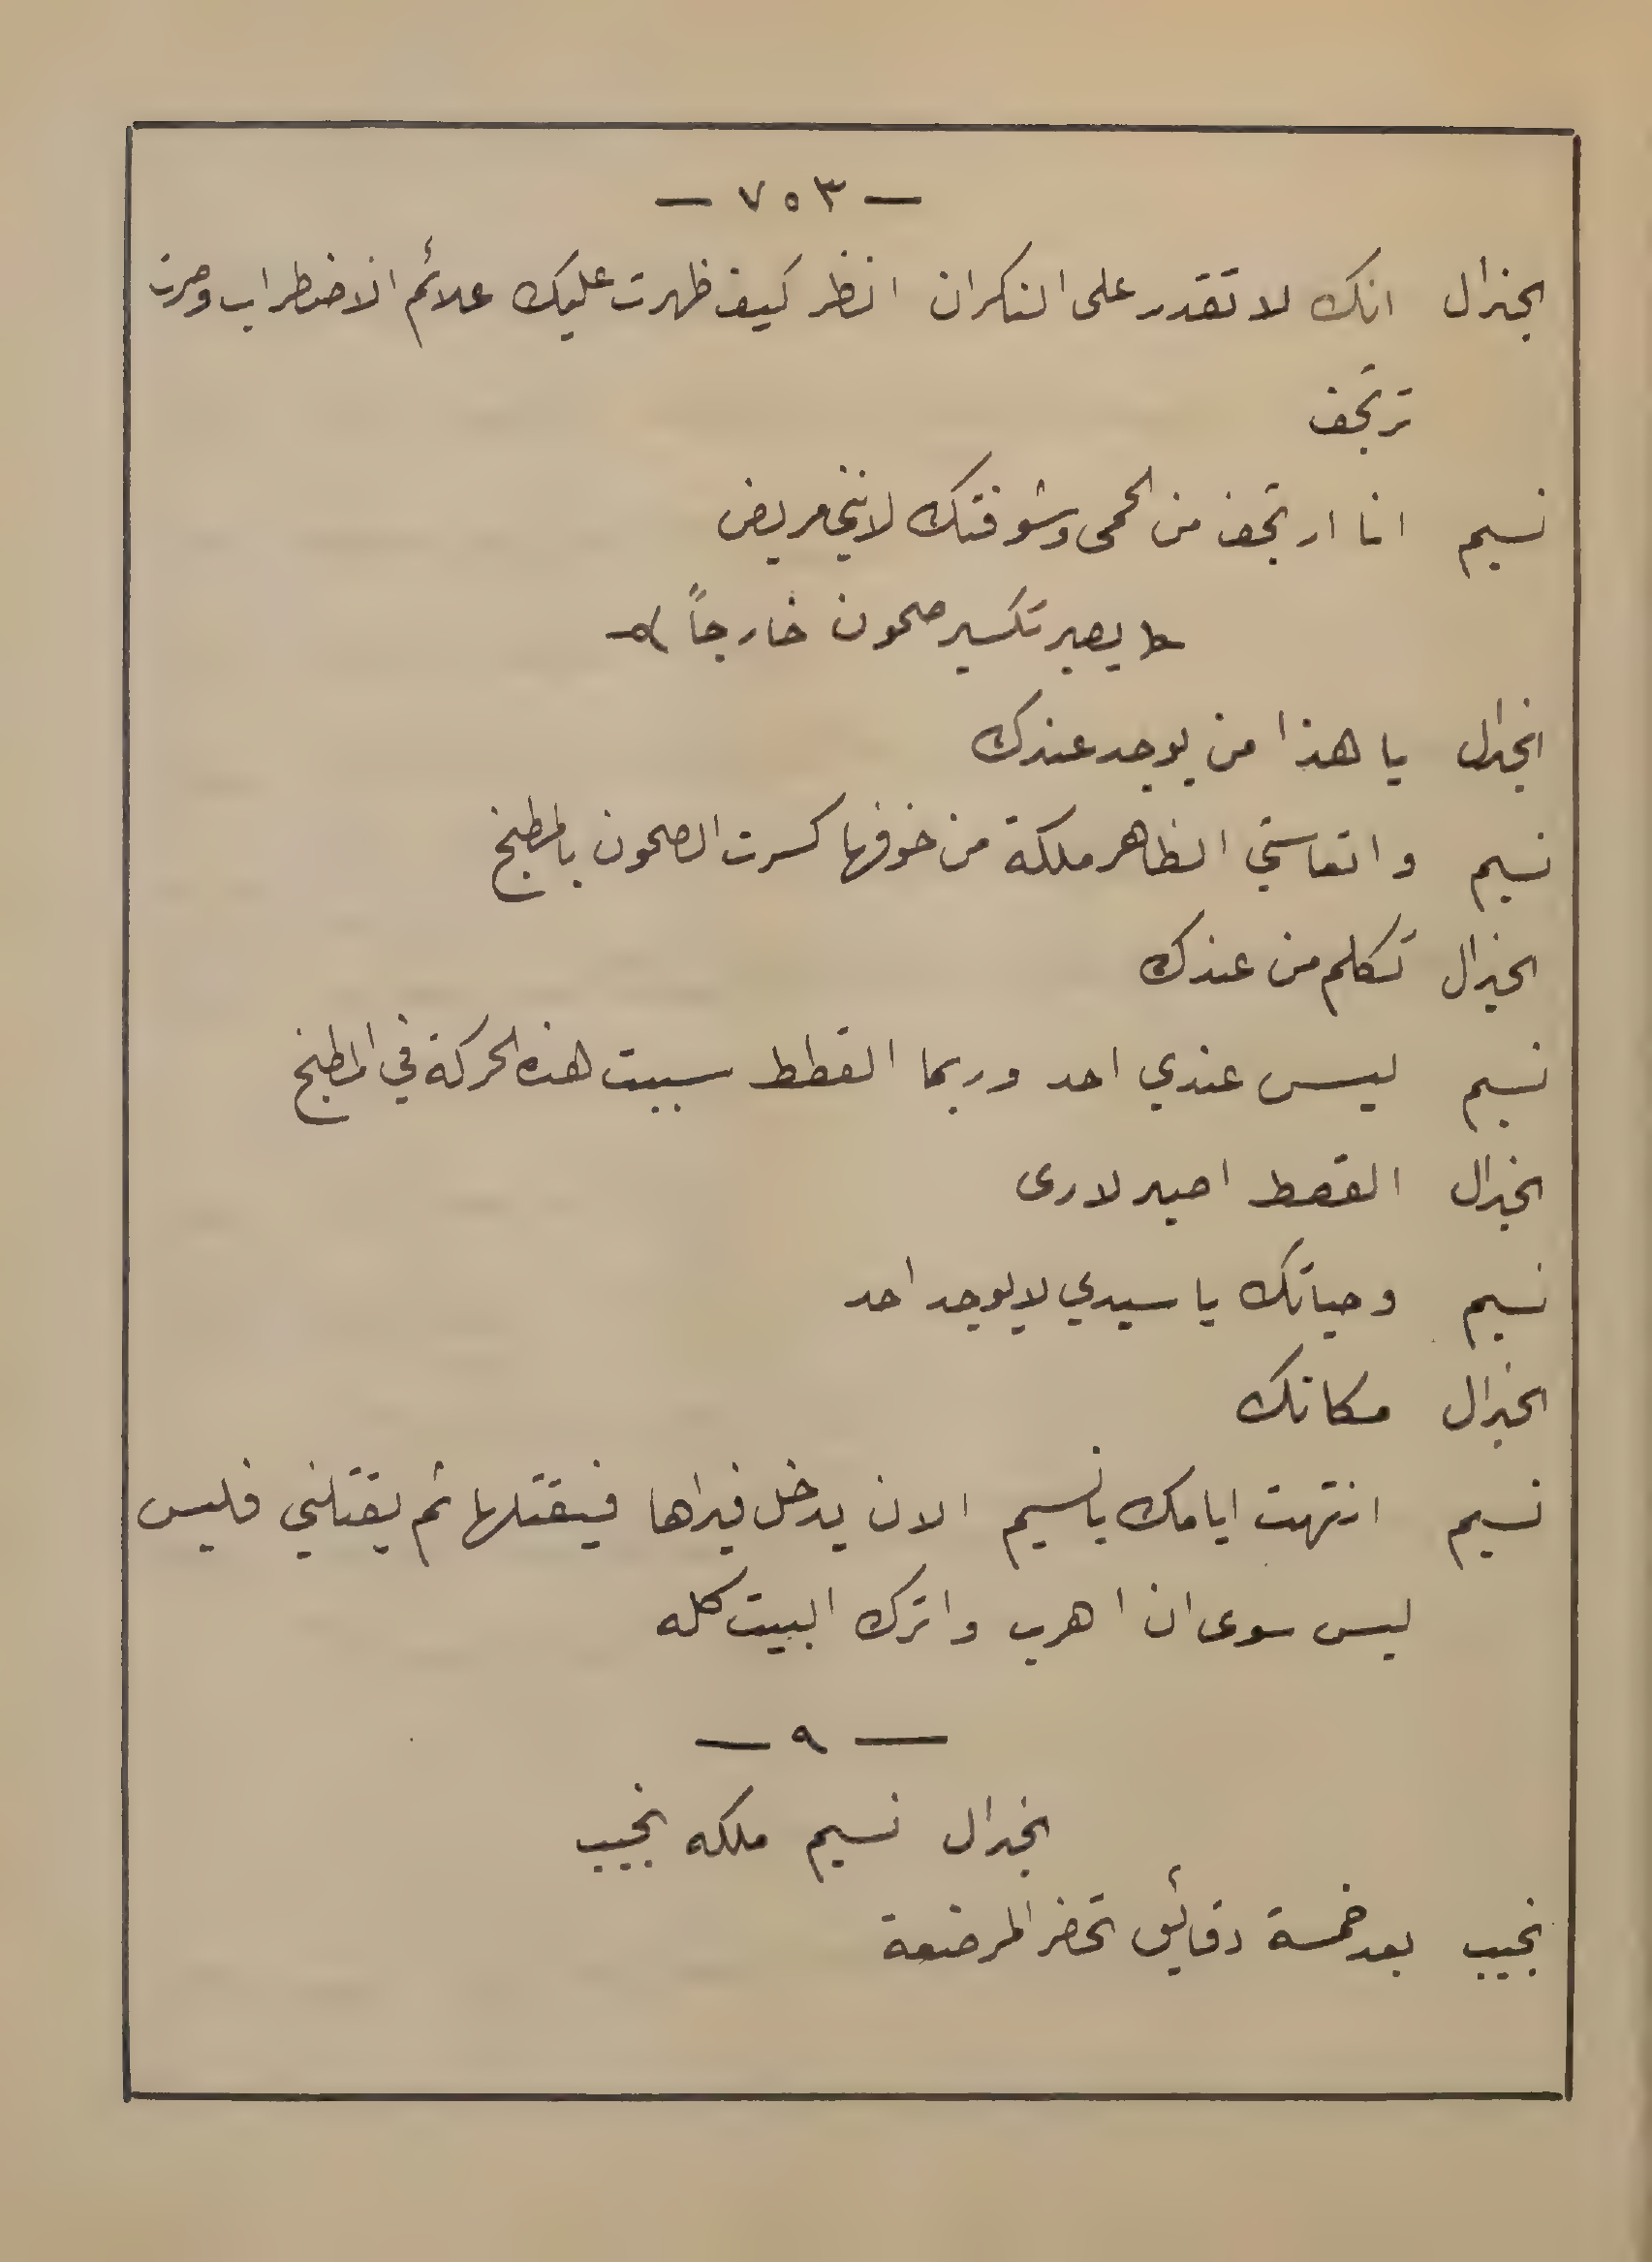 — ٧٥٣ —
الجنرال انك لا تقدر على النكران انظر كيف ظهرت عليك علائم الاضطراب وصرت
ترتجف
نسيم انا ارتجف من الحمى وشوفتك لانني مريض
( يصير تكسير صحون خارجاً )
الجنرال يا هذا من يوجد عندك
نسيم واتعاستي الظاهر ملكة من خوفها كسرت الصحون بالمطبخ
الجنرال تكلم من عندك
نسيم ليس عندي احد وربما القطط سببت هذه الحركة في المطبخ
الجنرال القطط اصبر لارى
نسيم وحياتك يا سيدي لا يوجد احد
الجنرال مكانك
نسيم انتهت ايامك يا نسيم الان يدخل فيراها فيقتلها ثم يقتلني فليس
ليس سوى ان اهرب واترك البيت كله
— ٩ —
الجنرال نسيم ملكه نجيب
نجيب بعد خمسة دقائق تحضر المرضعة